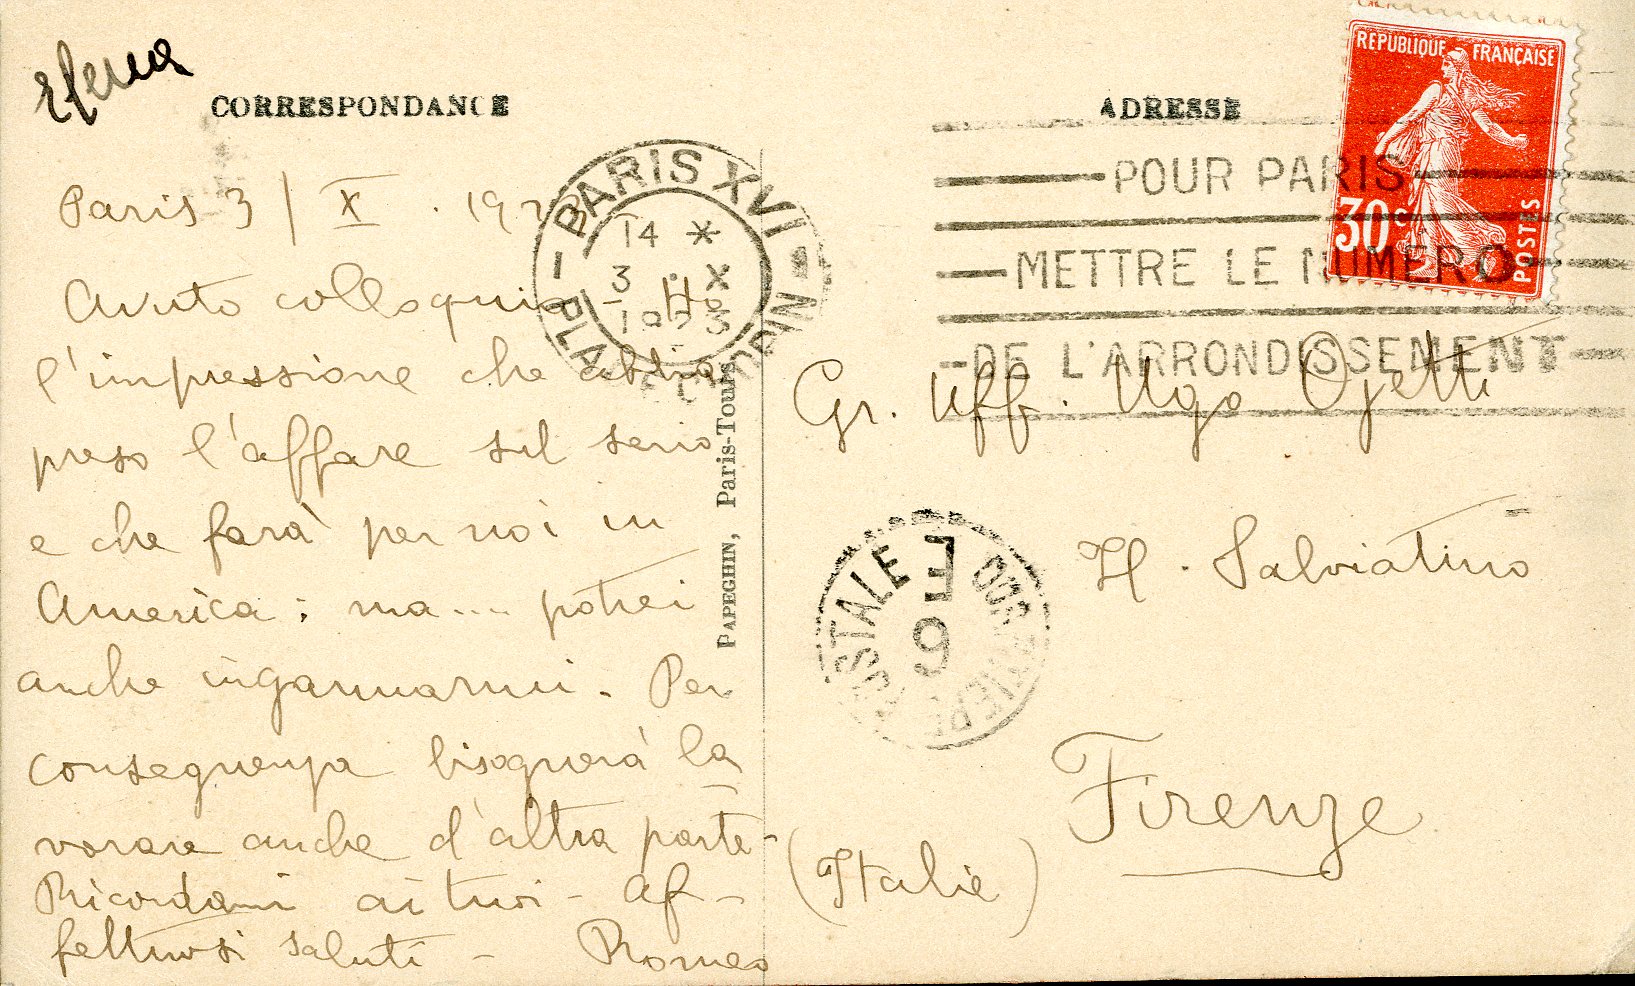 CORRESPONDANCE
Paris 3 / X . 192
Avuto colloquio. Ho
l'impressione che abbia
preso l'affare sul serio
e che farà per noi in
America; ma.... potrei
anche ingannarmi. Per
conseguenza bisognerà la
vorare anche d'altra parte-
Ricordami ai tuoi - Af-
fettuosi saluti - Romeo
PAPEGHIN, Paris-Tours
PARIS XVI
14 *
3 . X
1923
PLACE CHOPIN
ADRESSE
POUR PARIS
METTRE LE NUMERO
DE L'ARRONDISSEMENT
REPUBLIQUE FRANÇAISE
30c
POSTES
Gr. Uff. Ugo Ojetti
Il Salviatino
Firenze
(Italie)
POSTALE
E
6